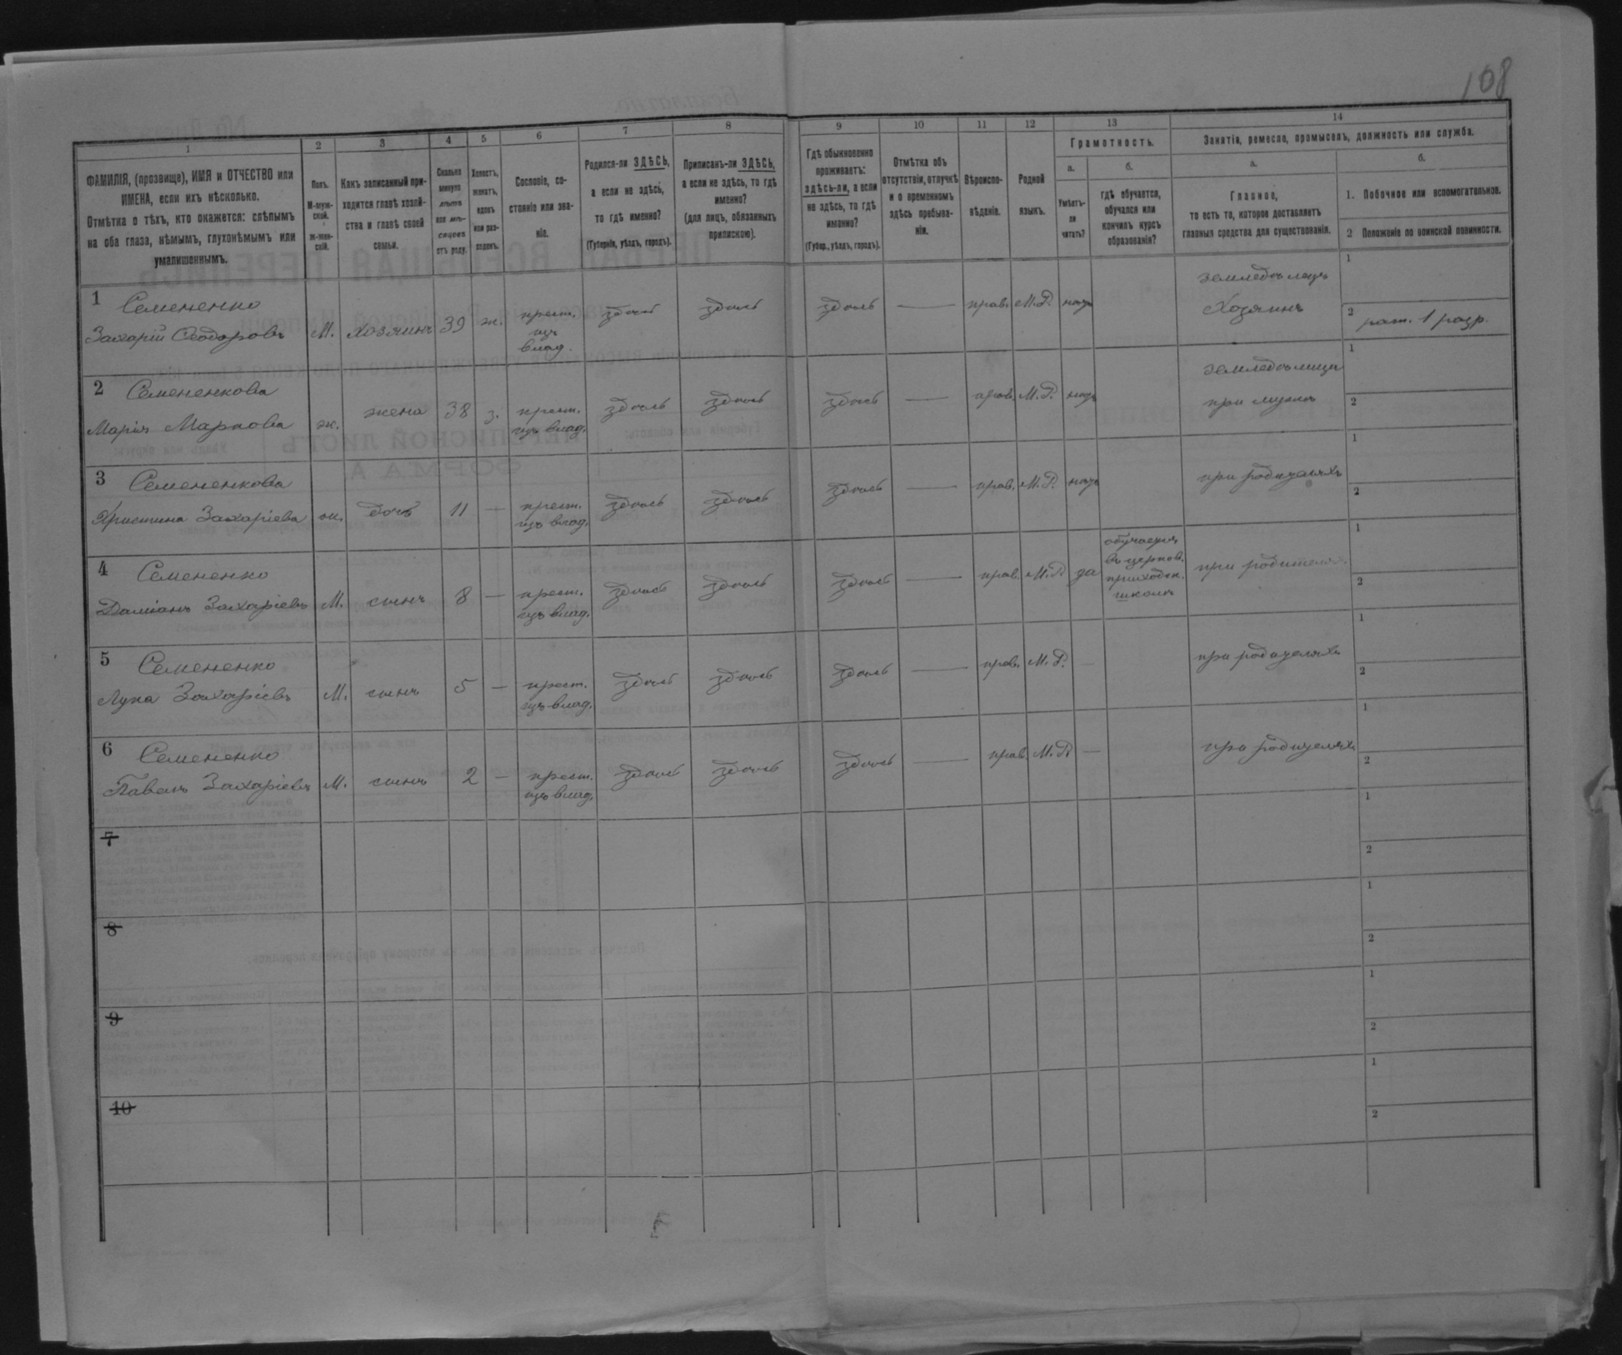 108
1
2
3
4
5
6
7
8
9
10
11
12
13
14
ФАМИЛІЯ, (прозвище), ИМЯ и ОТЧЕСТВО или
ИМЕНА, если ихъ нѣсколько.
Отмѣтка о тѣхъ, кто окажется: слѣпымъ
на оба глаза, нѣмымъ, глухонѣмымъ или
умалишеннымъ.
Полъ.
М-муж-
ской.
Ж-жен-
скій.
Какъ записанный при-
ходится главѣ хозяй-
ства и главѣ своей
семьи.
Сколько
минуло
лѣтъ
или мѣ-
сяцевъ
отъ роду.
Холостъ,
женатъ,
вдовъ
или раз-
веденъ.
Сословіе, со-
стояніе или зва-
ніе.
Родился-ли ЗДѢСЬ,
а если не здѣсь,
то гдѣ именно?
(Губернія, уѣздъ, городъ).
Приписанъ-ли ЗДѢСЬ,
а если не здѣсь, то гдѣ
именно?
(для лицъ, обязанныхъ
припискою).
Гдѣ обыкновенно
проживаетъ:
здѣсь-ли, а если
не здѣсь, то гдѣ
именно?
(Губер., уѣздъ, городъ).
Отмѣтка объ
отсутствіи, отлучкѣ
и о временномъ
здѣсь пребыва-
ніи.
Вѣроиспо-
вѣданіе.
Родной
языкъ.
Грамотность.
а.
Умѣетъ-
ли
читать?
б.
гдѣ обучается,
обучался или
кончилъ курсъ
образованія?
Занятіе, ремесло, промыселъ, должность или служба.
а.
Главное,
то есть то, которое доставляетъ
главныя средства для существованія.
б.
1. Побочное или вспомогательное.
2 Положеніе по воинской повинности.
1 Семененко
Захарій Ѳеодоровъ М. хозяинъ 39 ж. крест. изъ влад. здѣсь здѣсь здѣсь — прав. М.Р. нѣтъ земледѣлецъ Хозяинъ 1
2 рат. 1 разр.
2 Семененкова
Марія Маркова ж. жена 38 з. крест. изъ влад. здѣсь здѣсь здѣсь — прав. М.Р. нѣтъ земледѣлица при мужѣ 1
2
3 Семененкова
Христина Захаріева ж. дочь 11 — крест. изъ влад. здѣсь здѣсь здѣсь — прав. М.Р. нѣтъ при родителяхъ 1
2
4 Семененко
Даміанъ Захаріевъ М. сынъ 8 — крест. изъ влад. здѣсь здѣсь здѣсь — прав. М.Р. да обучается въ церков. приходск. школѣ при родителяхъ 1
2
5 Семененко
Лука Захаріевъ М. сынъ 5 — крест. изъ влад. здѣсь здѣсь здѣсь — прав. М.Р. — при родителяхъ 1
2
6 Семененко
Павелъ Захаріевъ М. сынъ 2 — крест. изъ влад. здѣсь здѣсь здѣсь — прав. М.Р. — при родителяхъ 1
2
7 1
2
8 1
2
9 1
2
10 1
2